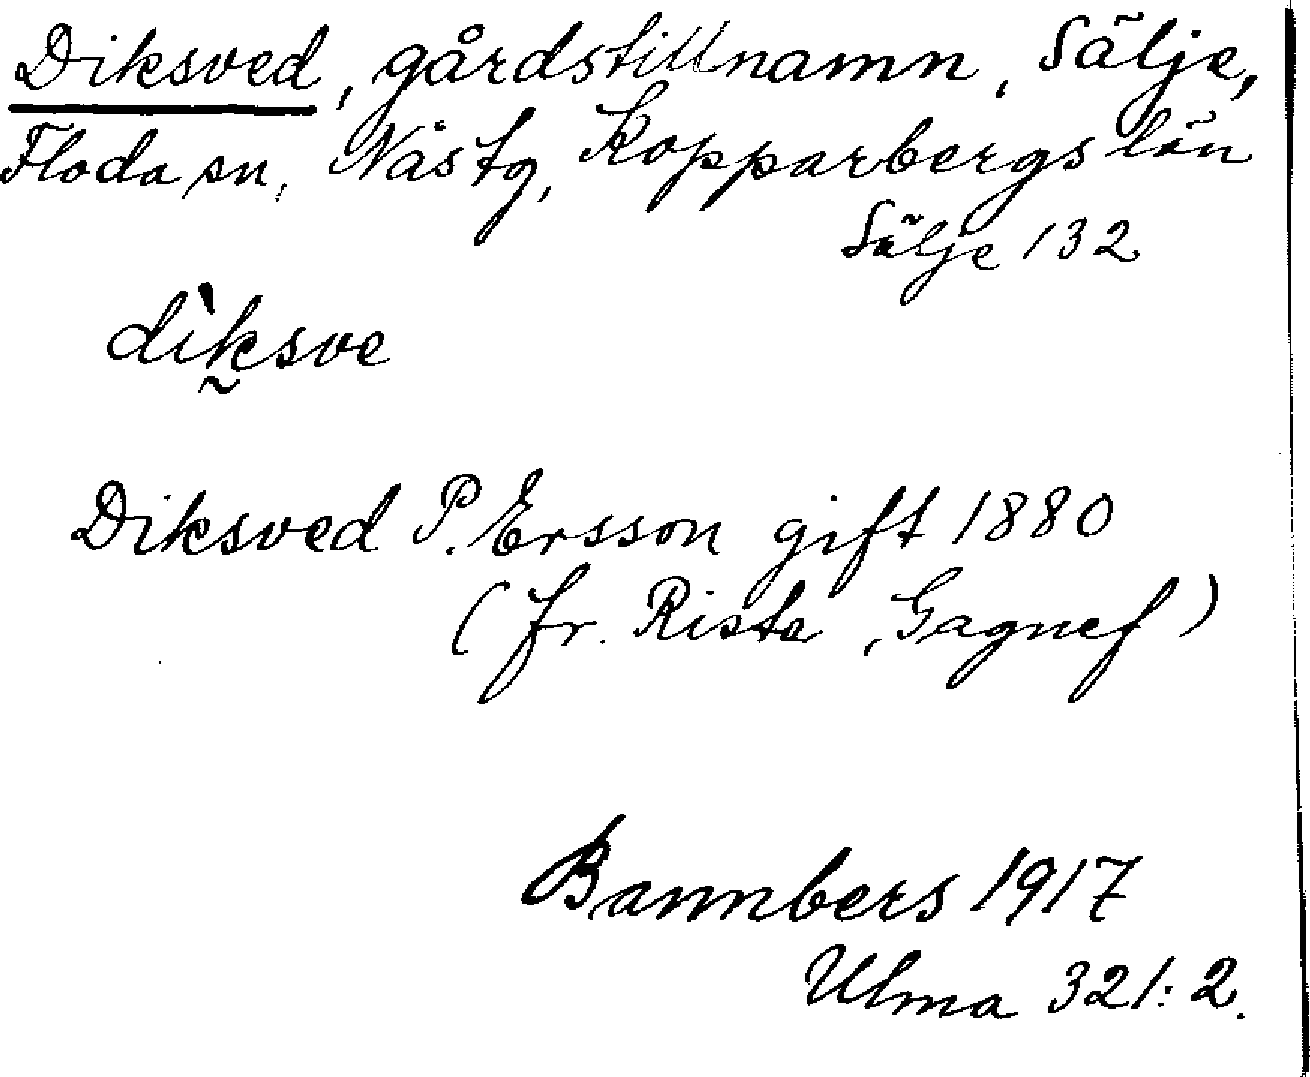 Diksved, gårdstillnamn, Sälje,
Floda sn, Nåstg, Kopparbergs län
Sälje 132
dìksve
Diksved P. Ersson gift 1880
(fr. Rista, Gagnef)
Bannbers 1917
Ulma 321:2.